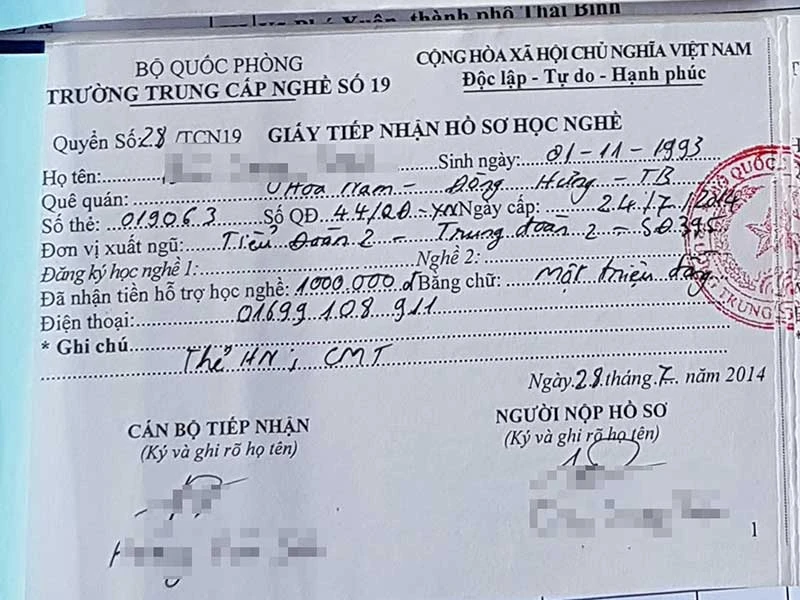 Phú Xuân, thành phố Thái Bình
BỘ QUỐC PHÒNG
TRƯỜNG TRUNG CẤP NGHỀ SỐ 19
CỘNG HÒA XÃ HỘI CHỦ NGHĨA VIỆT NAM
Độc lập - Tự do - Hạnh phúc
Quyển Số 28/TCN19 GIẤY TIẾP NHẬN HỒ SƠ HỌC NGHỀ
Họ tên: Sinh ngày: 01-11-1993
Quê quán: Hoa Nam - Đông Hưng - TB
Số thẻ: 019063 Số QĐ: 44/QĐ-XN Ngày cấp: 24/7/2014
Đơn vị xuất ngũ: Tiểu Đoàn 2 - Trung đoàn 2 - SĐ.395
Đăng ký học nghề 1: Nghề 2:
Đã nhận tiền hỗ trợ học nghề: 1000.000 đ Bằng chữ: Một triệu đồng
Điện thoại: 01699.108 911
* Ghi chú
Thẻ HN, CMT
Ngày 28 tháng 7 năm 2014
CÁN BỘ TIẾP NHẬN
(Ký và ghi rõ họ tên)
NGƯỜI NỘP HỒ SƠ
(Ký và ghi rõ họ tên)
1